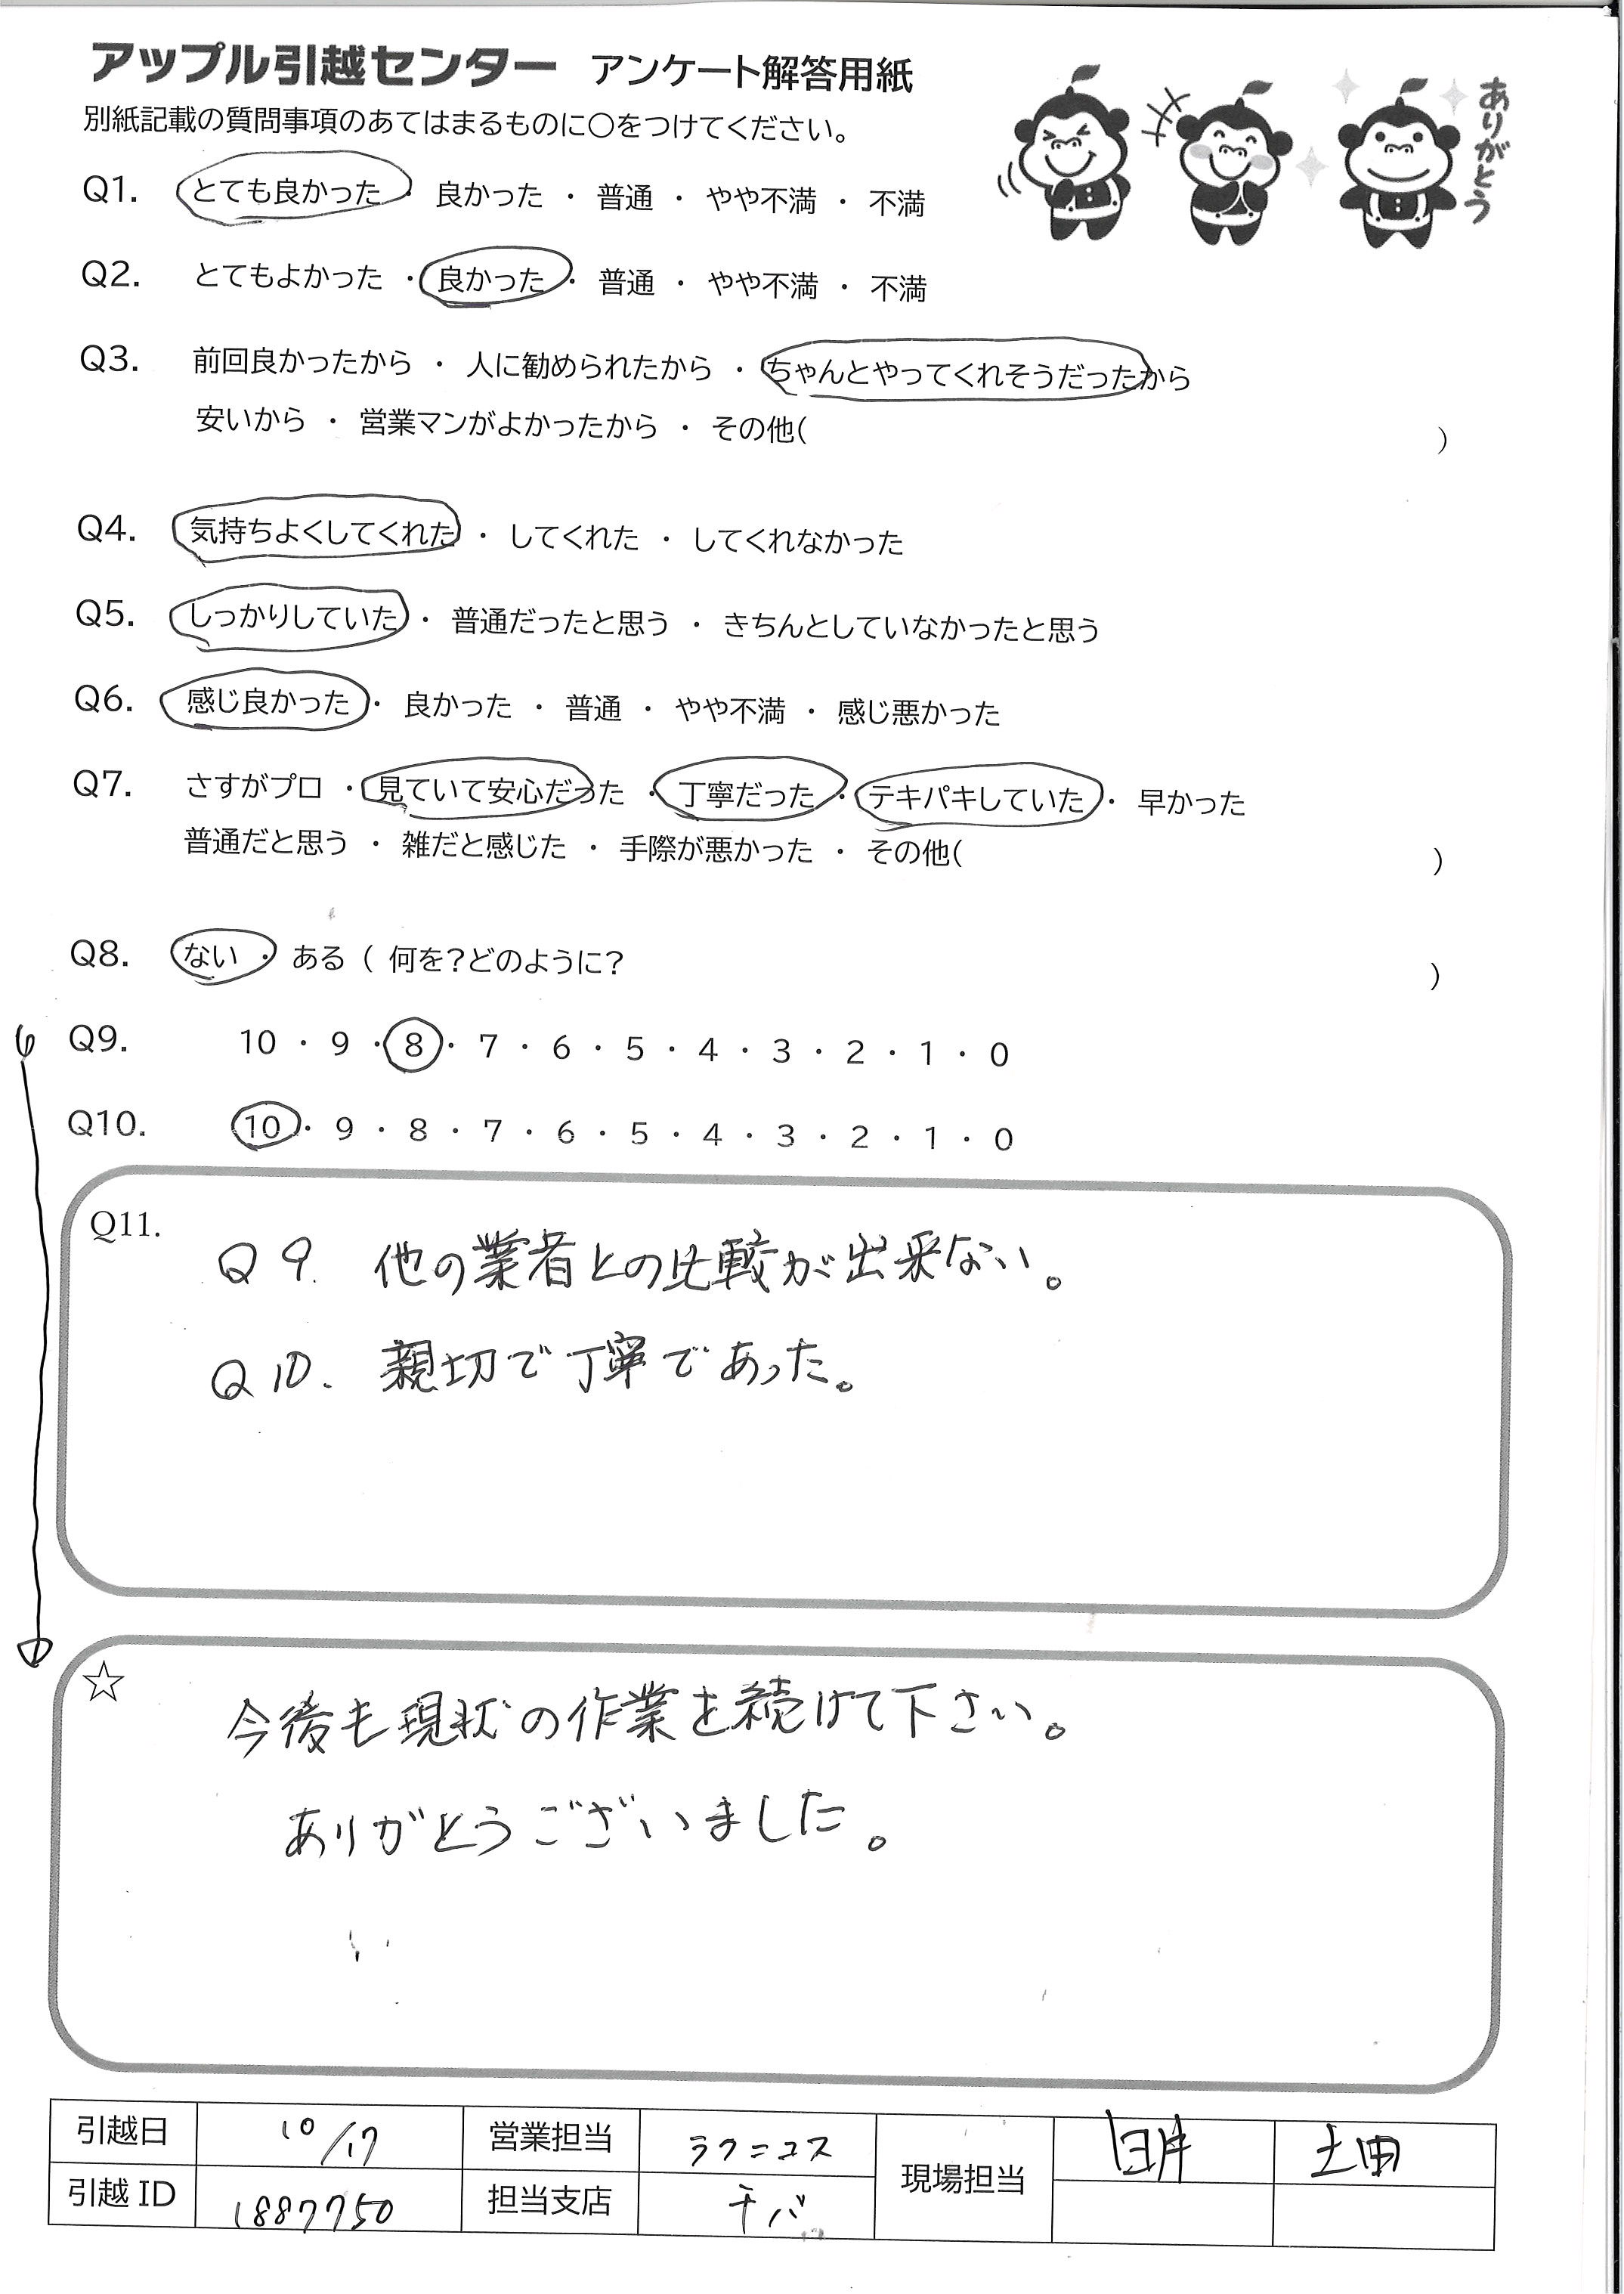 アップル引越センター アンケート解答用紙
別紙記載の質問事項のあてはまるものに〇をつけてください。
ありがとう
Q1. とても良かった ・ 良かった ・ 普通 ・ やや不満 ・ 不満
Q2. とてもよかった ・ 良かった ・ 普通 ・ やや不満 ・ 不満
Q3. 前回良かったから ・ 人に勧められたから ・ ちゃんとやってくれそうだったから
安いから ・ 営業マンがよかったから ・ その他( )
Q4. 気持ちよくしてくれた ・ してくれた ・ してくれなかった
Q5. しっかりしていた ・ 普通だったと思う ・ きちんとしていなかったと思う
Q6. 感じ良かった ・ 良かった ・ 普通 ・ やや不満 ・ 感じ悪かった
Q7. さすがプロ ・ 見ていて安心だった ・ 丁寧だった ・ テキパキしていた ・ 早かった
普通だと思う ・ 雑だと感じた ・ 手際が悪かった ・ その他( )
Q8. ない ・ ある ( 何を?どのように? )
Q9. 10 ・ 9 ・ 8 ・ 7 ・ 6 ・ 5 ・ 4 ・ 3 ・ 2 ・ 1 ・ 0
Q10. 10 ・ 9 ・ 8 ・ 7 ・ 6 ・ 5 ・ 4 ・ 3 ・ 2 ・ 1 ・ 0
Q11.
Q9. 他の業者との比較が出来ない。
Q10. 親切で丁寧であった。
☆
今後も現状の作業を続けて下さい。
ありがとうございました。
引越日 10/17 営業担当 ラクニコス 現場担当 臼井 土田
引越ID 1887750 担当支店 千バ